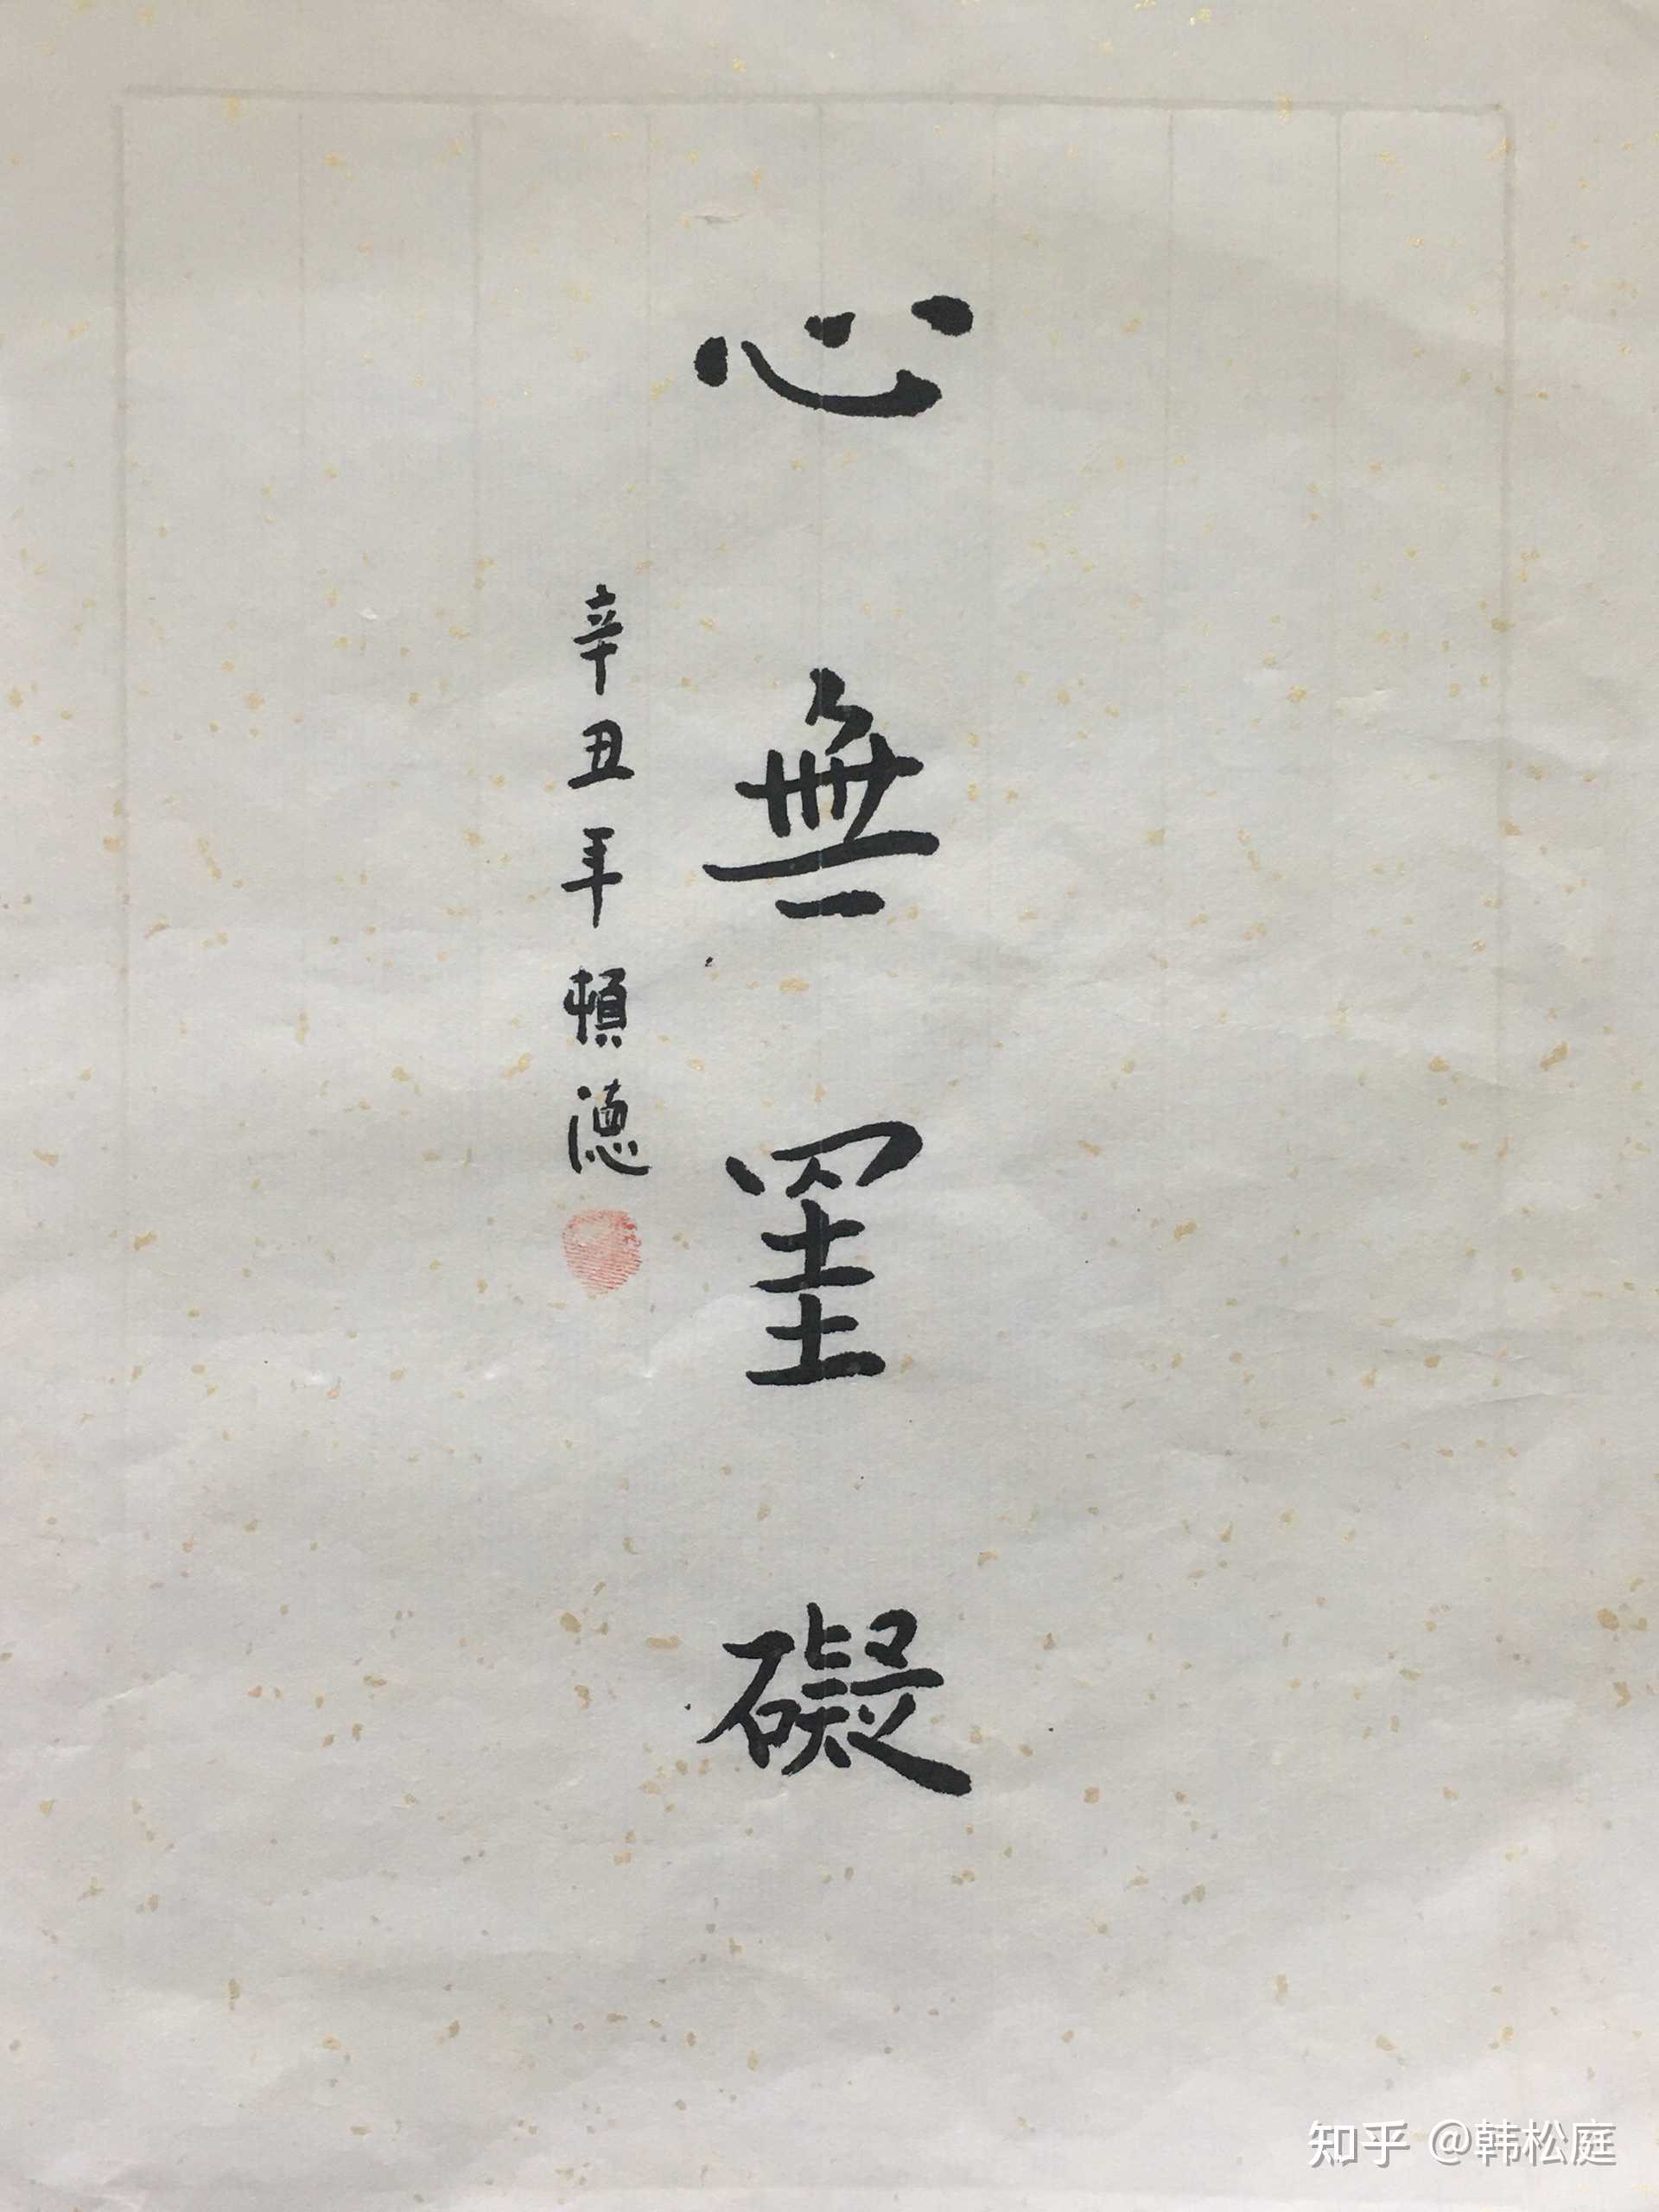 心無罣礙
辛丑年頓德
知乎 @韩松庭